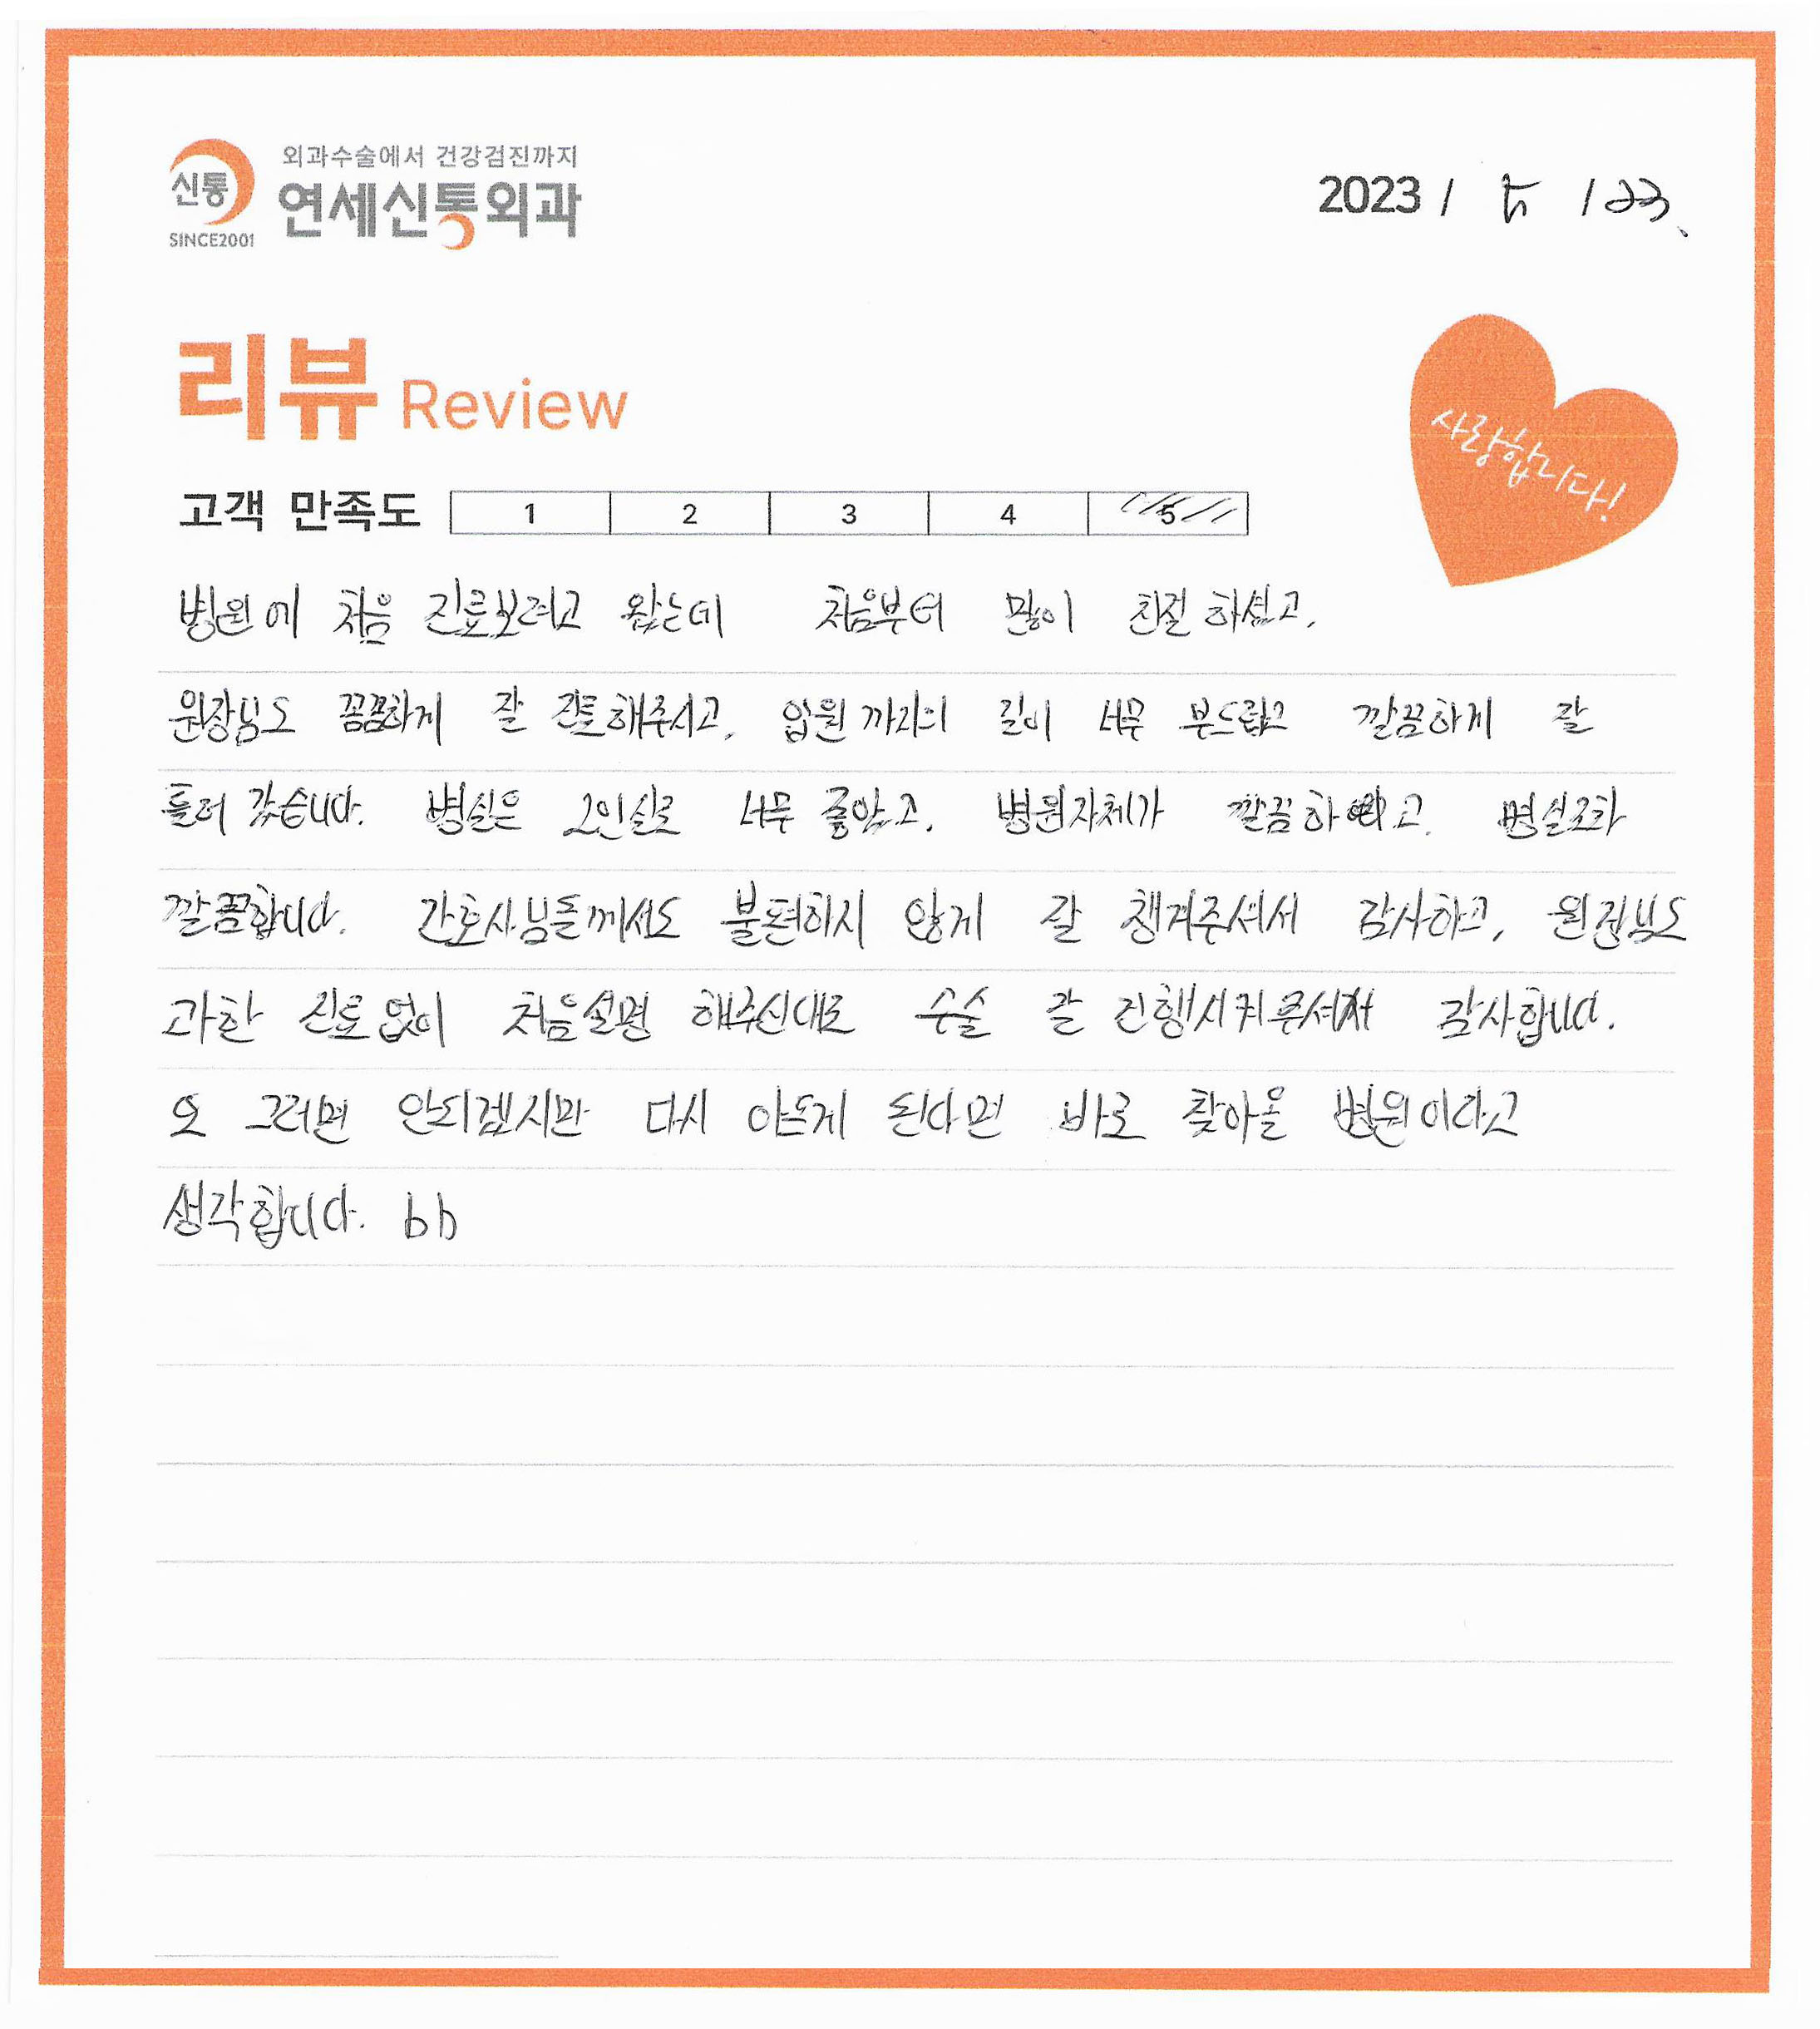 외과수술에서 건강검진까지
신통
연세신통외과
SINCE2001
2023 / 5 / 23.
리뷰 Review
사랑합니다!
고객 만족도 1 2 3 4 5
병원에 처음 진료보려고 왔는데 처음부터 많이 친절 하셨고,
원장님도 꼼꼼하게 잘 진료해주시고, 입원까지의 길이 너무 부드럽고 깔끔하게 잘
들어 갔습니다. 병실은 2인실로 너무 좋았고, 병원자체가 깔끔하고, 병실조차
깔끔합니다. 간호사님들께서도 불편하지 않게 잘 챙겨주셔서 감사하고, 원장님도
과한 진료없이 처음설명 해주신대로 수술 잘 진행시켜주셔서 감사합니다.
또 그러면 안되겠지만 다시 아프게 된다면 바로 찾아올 병원이라고
생각합니다. bb